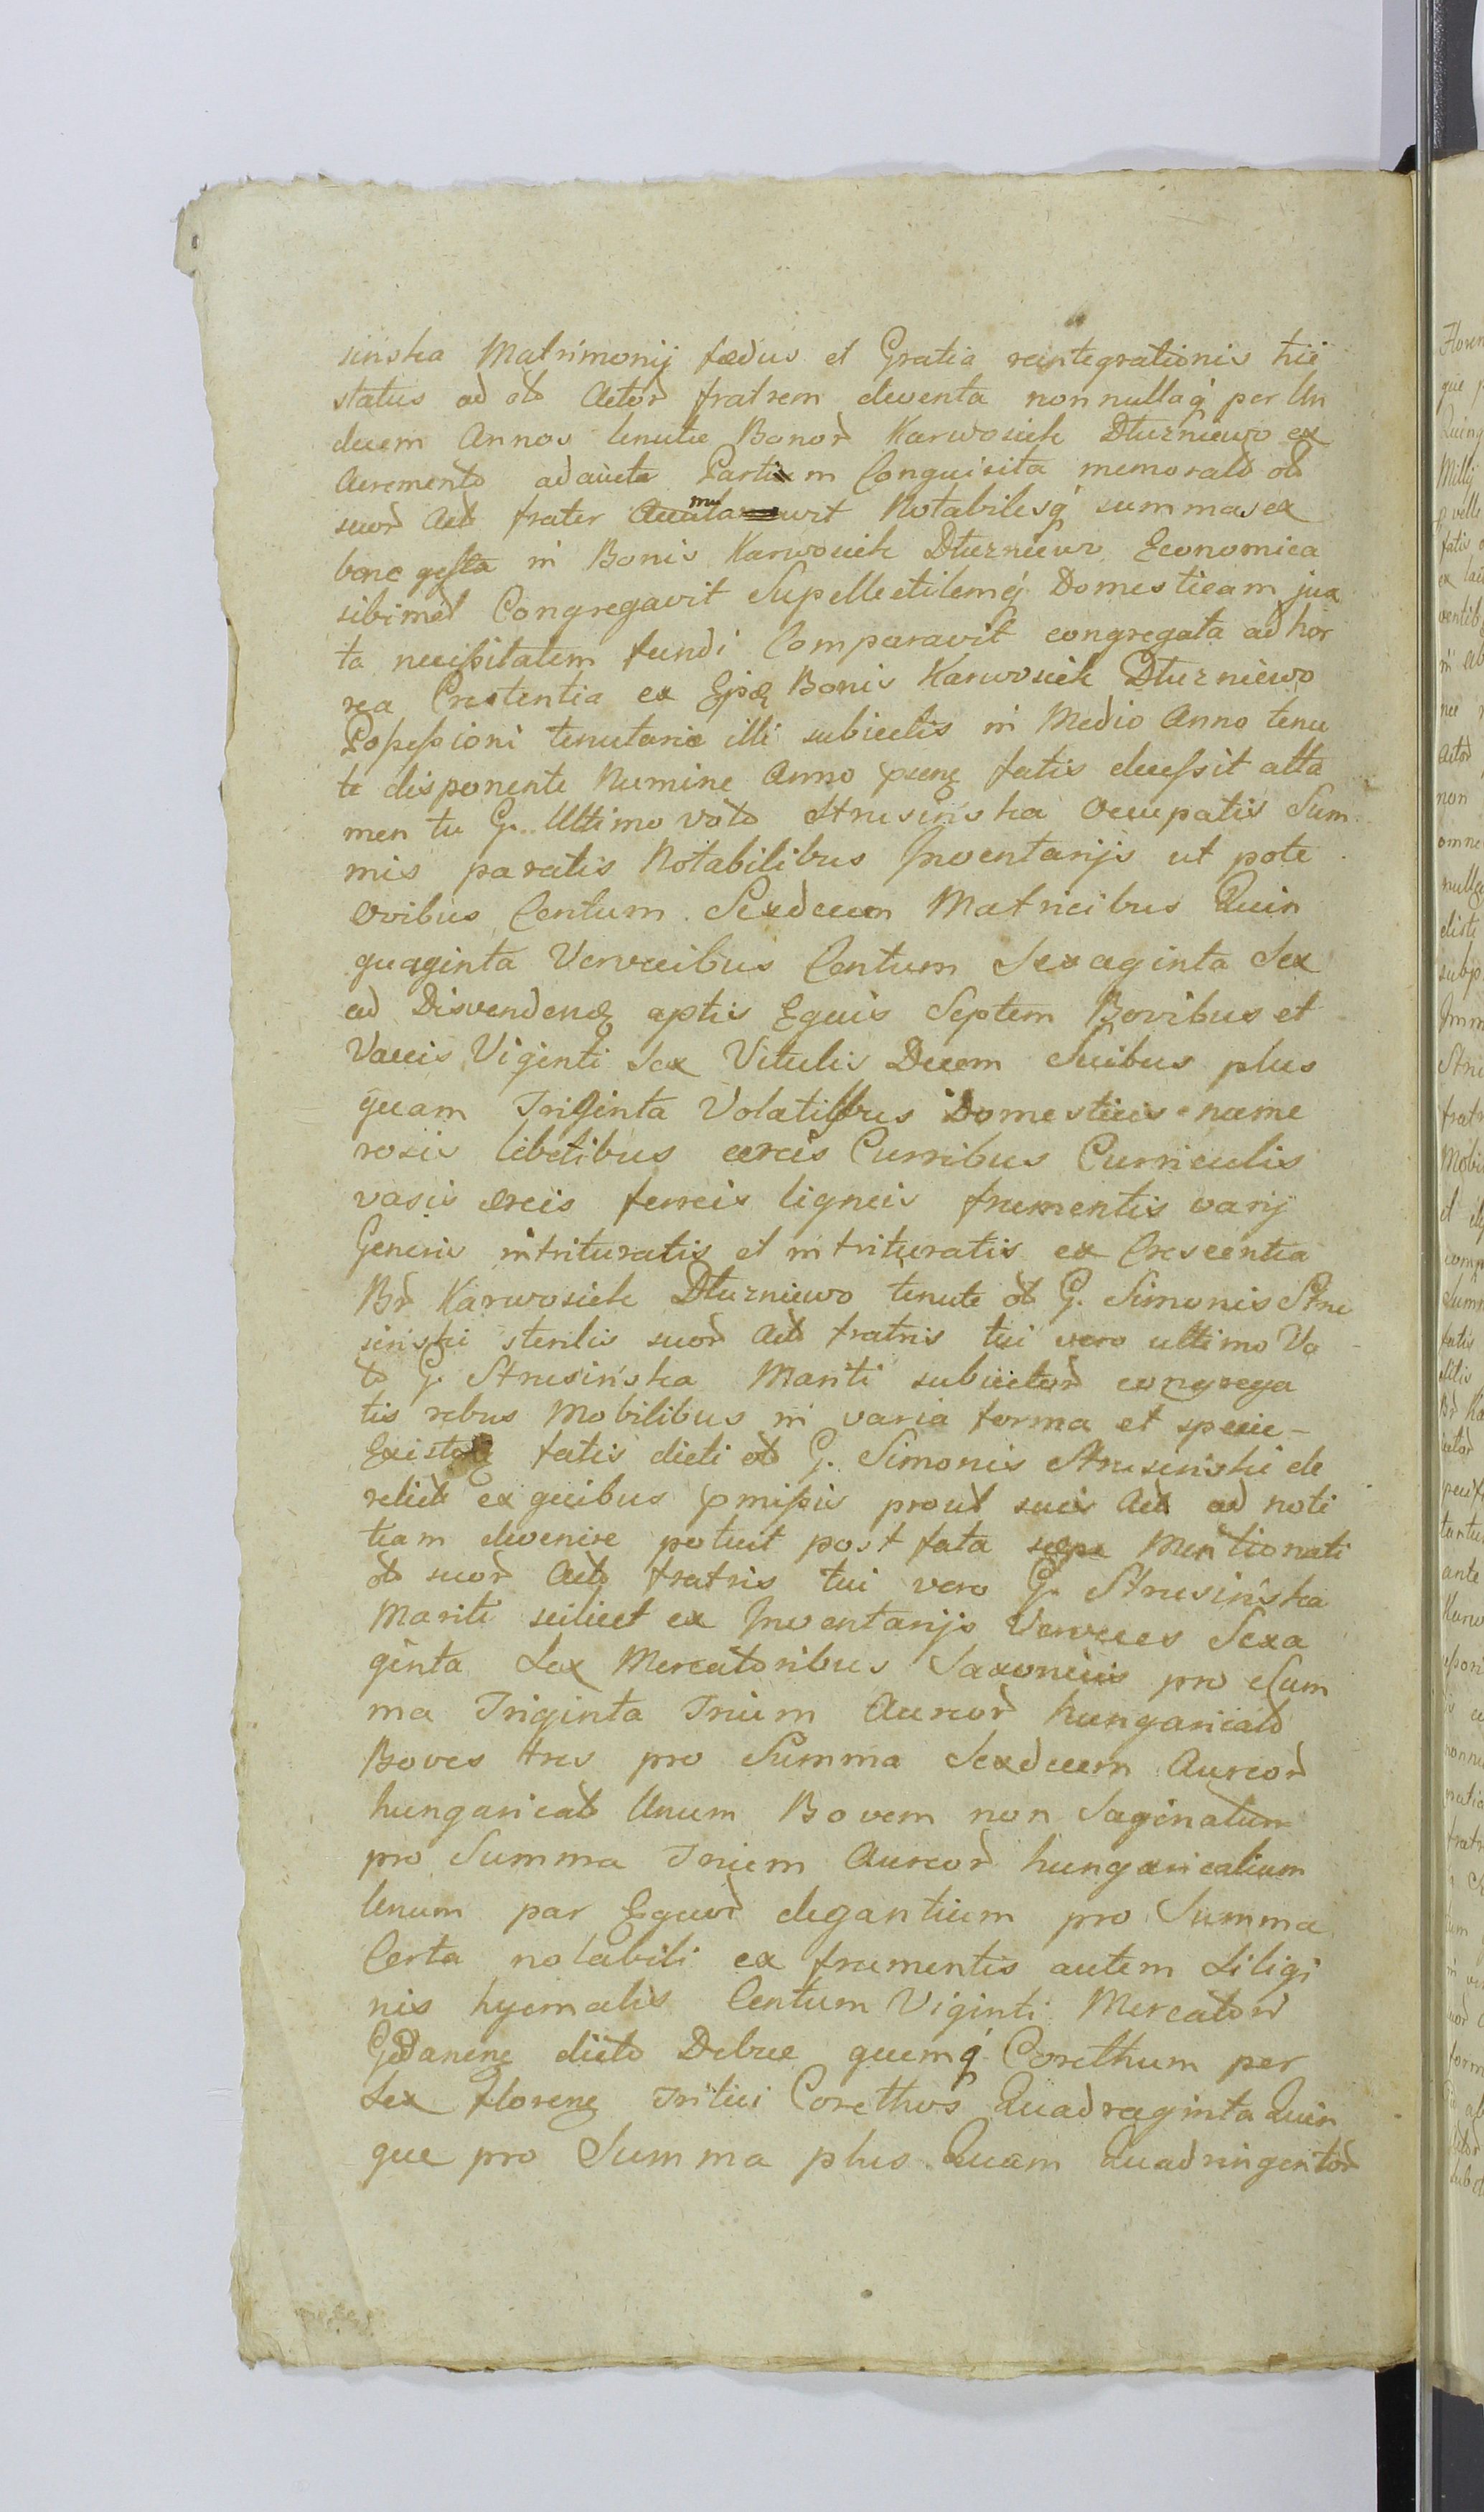 sińska Matrimonij fædus et Gratia reintegrationis hii
status ad ol̃o Actoꝝ fratrem deventa nonnullaq́ per Un
decem Annos tenutæ Bonoꝝ Karwosieki Dłuzniewo ex
Acremento adaucta Partim Conquisita memorato ol̃o
suoꝝ Act̃o frater Accumulavit Notabilesq́ summas ex
bene gesta in Bonis Karwosieki Dłuzniewo Economica
sibimet Congregavit Supellectilemq́ Domesticam jux
ta necessitatem fundi Comparavit congregata ad hor
rea Crestentia ex Ejsꝫ Bonis Karwosieki Dłuzniewo
Possessioni tenutariæ illi subiectis in Medio Anno tenu
te disponente Numine Anno pñꝫ fatis decessit atta
men tu G. Ultimo voto Strusińska Occupatis Sum
mis paratis Notabilibus Inventarijs ut pote
Ovibus Centum Sexdecem Matricibus Quin
quaginta Vervecibus Centum Sexaginta Sex
ad Disvendenꝫ aptis Equis Septem Bovibus et
Vaccis Viginti Sex Vitulis Decem Suibus plus
quam Triginta Volatilibus Domesticis nume
rosis lebetibus æreis Curribus Curriculis
vasis æreis ferreis ligneis frumentis varij
Generis intrituratis et intrituratis ex Crescentia
Br̃ Karwosieki Dłuzniewo tenute ol̃o G. Simonis Stru
sinski sterilis suoꝝ Act̃o fratris tui vero ultimo Vo
to G. Strusińska Mariti subiectoꝝ congrega
tis rebus Mobilibus in varia forma et specie
Existeñꝫ fatis dicti ol̃o G. Simonis Strusinski de
relict̃o ex quibus p̃missis prout suis Act̃o ad noti
tiam devenire potuit post fata sæpe Mentionati
ol̃o suoꝝ Act̃o fratris tui vero G. Strusińska
Mariti scilicet ex Inventarijs Verveces Sexa
ginta Sex Mercatoribus Saxonicis pro Sum
ma Triginta Trium Aureoꝝ hungaricalo
Boves tres pro Summa Sexdecem Aureoꝝ
hungaricalo Unum Bovem non Saginatum
pro Summa Trium Aureoꝝ hungaricalium
Unum par Equoꝝ elegantium pro Summa
Certa notabili ex frumentis autem Siligi
nis hyemalis Centum Viginti Mercatori
Gedanenꝫ dicto Debue quemq́ Corethum per
Sex florenꝫ Tritici Corethos Quadraginta Quin
que pro Summa plus Quam Quadringentoꝝ